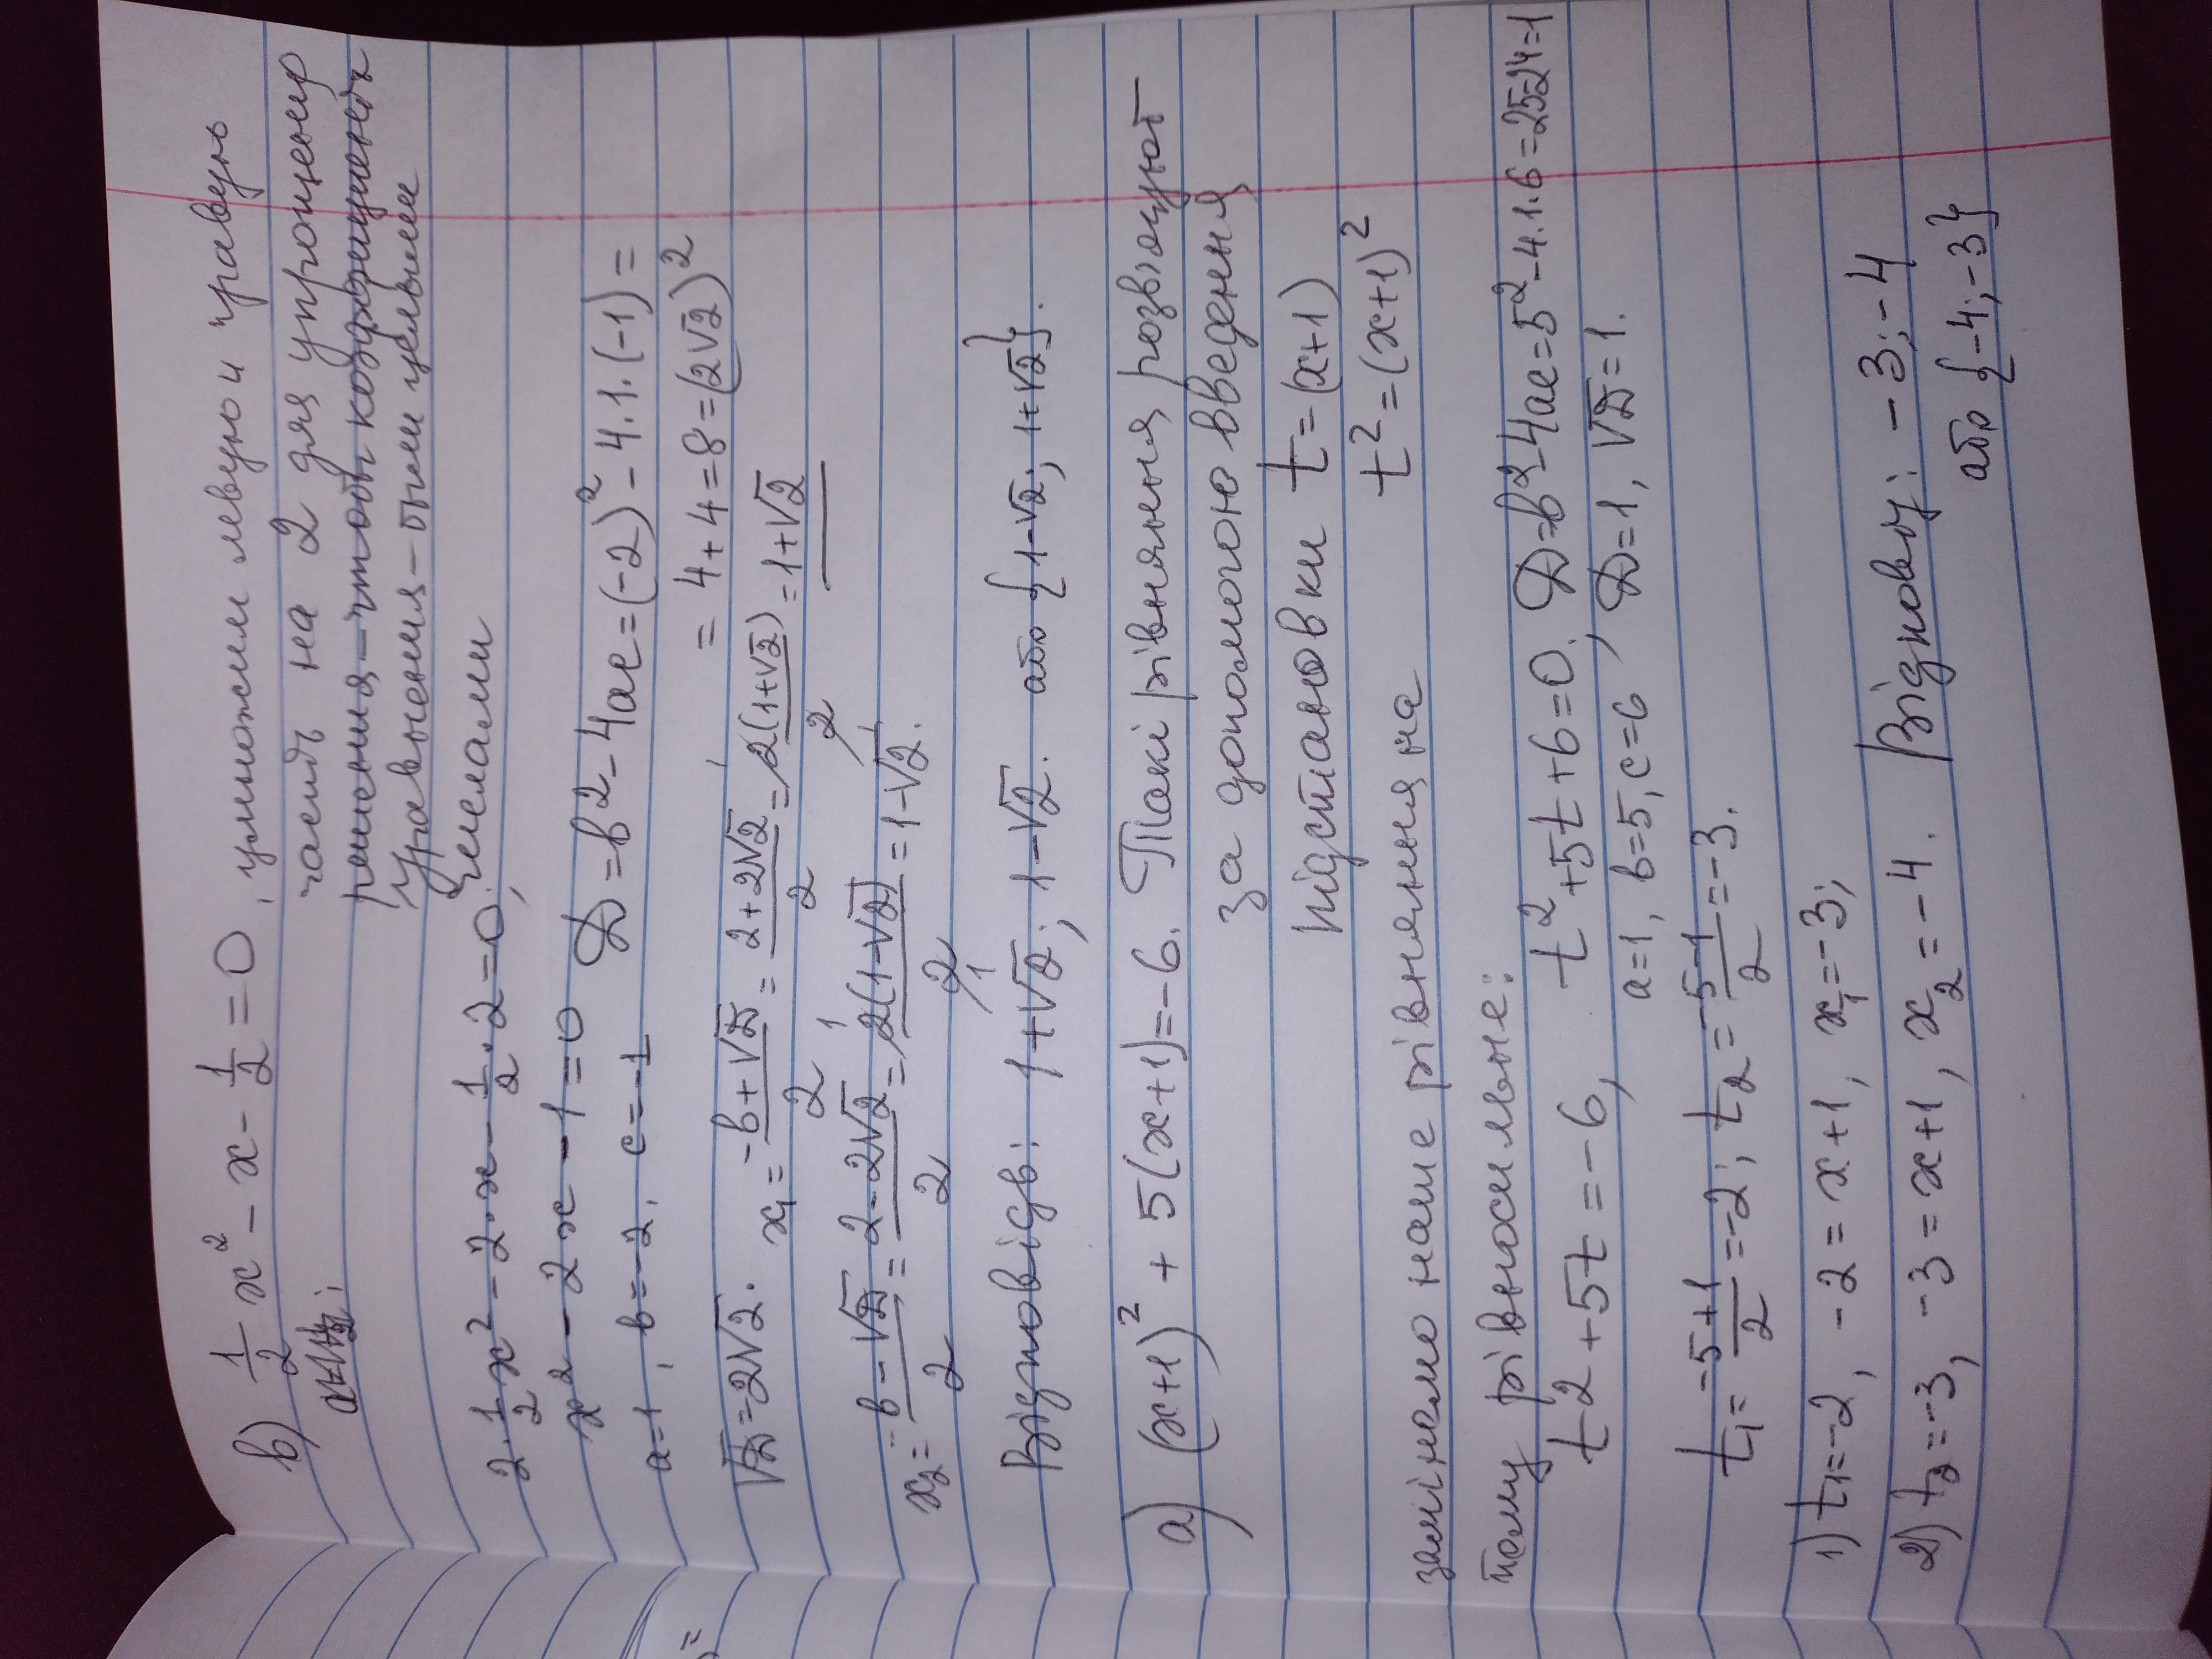 в) 1/2 x² - x - 1/2 = 0, умножим левую и правую
часть на 2 для упрощения
решения - чтобы коэффициенты
уравнения - были целыми
числами
2·1/2 x² - 2·x - 1/2·2 = 0;
x² - 2x - 1 = 0 D = b² - 4ac = (-2)² - 4·1·(-1) =
a=1, b=-2, c=-1 = 4+4=8=(2√2)²
√D=2√2. x₁ = (-b+√D)/2 = (2+2√2)/2 = 2(1+√2)/2 = 1+√2
x₂ = (-b-√D)/2 = (2-2√2)/2 = 2(1-√2)/2 = 1-√2.
Відповідь: 1+√2; 1-√2. або {1-√2; 1+√2}.
а) (x+1)² + 5(x+1) = -6. Такі рівняння розвязуют
за допомогою введення
підстановки t=(x+1)
t²=(x+1)²
замінемо наше рівняння на
тому рівносильне:
t²+5t=-6, t²+5t+6=0. D=b²-4ac=5²-4·1·6=25-24=1
a=1, b=5, c=6, D=1, √D=1.
t₁ = (-5+1)/2 = -2; t₂ = (-5-1)/2 = -3.
1) t₁=-2, -2 = x+1, x₁=-3;
2) t₂=-3, -3 = x+1, x₂=-4. Відповідь: -3; -4
або {-4; -3}